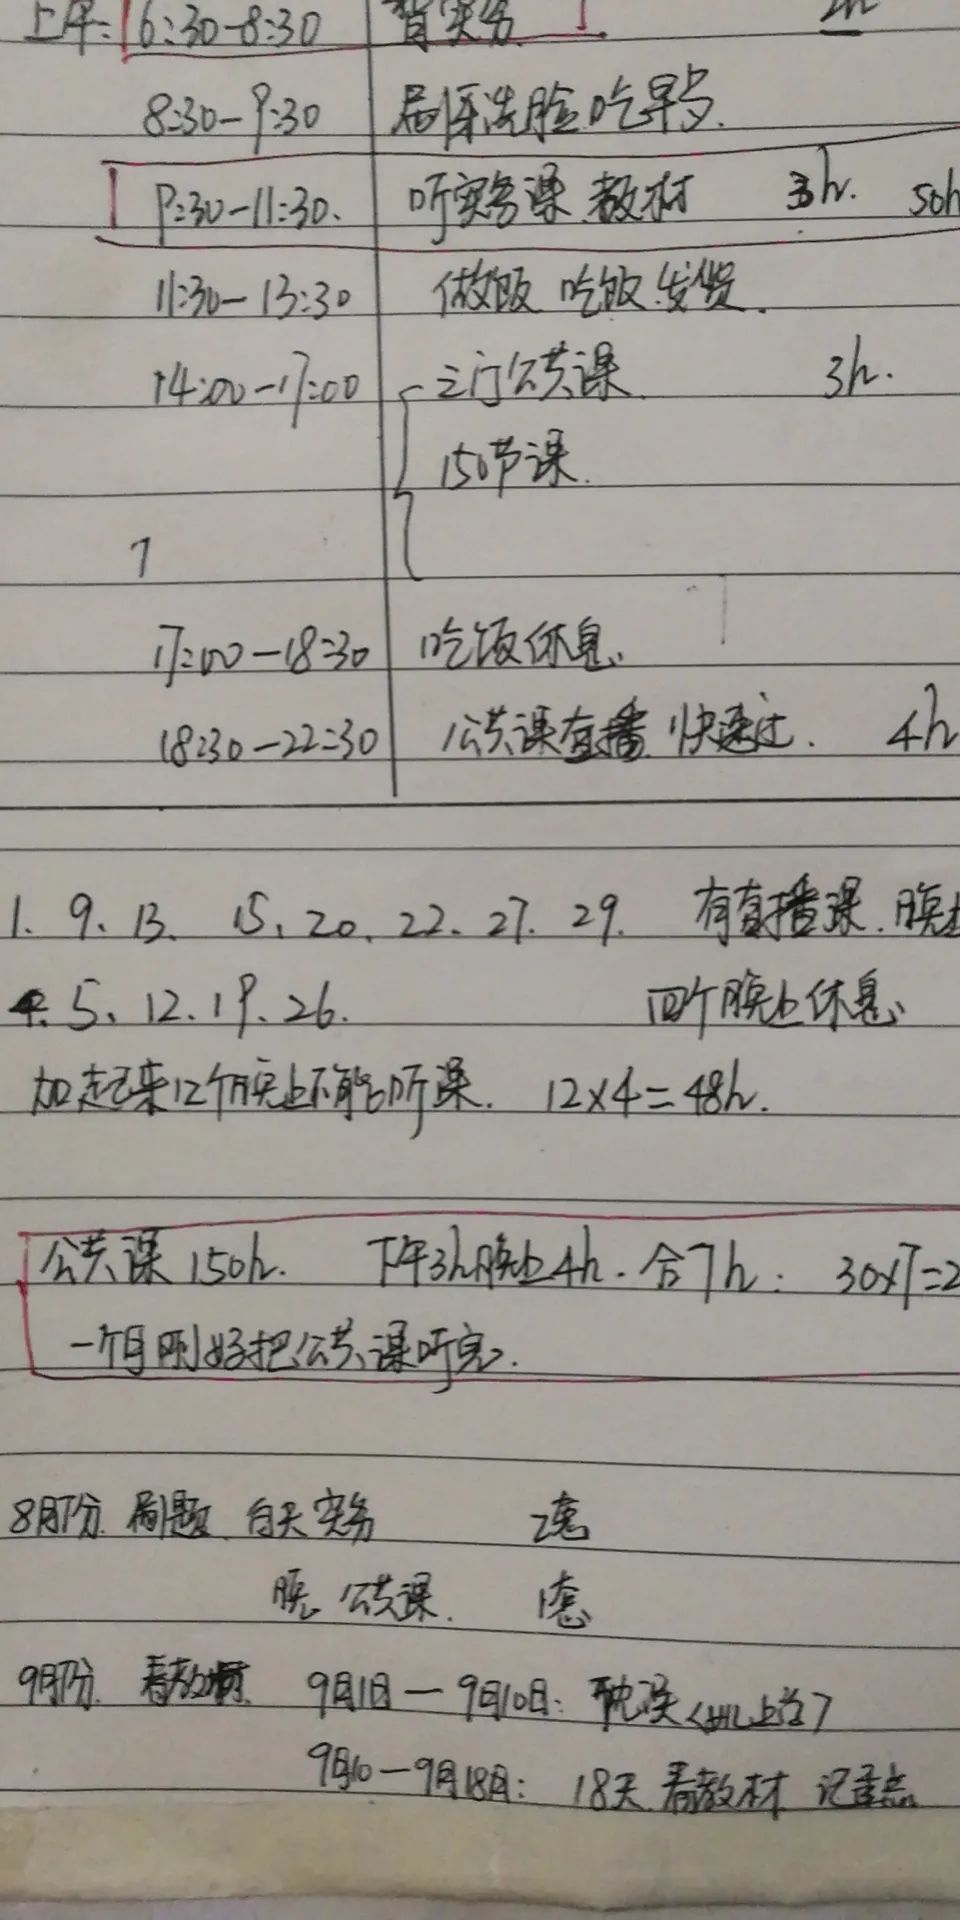 上午: 6:30-8:30 背实务 2h
8:30-9:30 刷牙洗脸吃早
9:30-11:30. 听实务课 教材 3h. 50h
11:30-13:30 做饭 吃饭 发货.
14:00-17:00 三门公共课 3h.
150节课.
17:00-18:30 吃饭休息、
18:30-22:30 公共课直播 快速过. 4h
1. 9、13、 15、20、22、27、29. 有直播课.晚上
5、12、19、26. 四个晚上休息
加起来12个晚上不能听课. 12×4=48h.
公共课150h. 下午3h晚上4h.合7h: 30×7=2
一个月刚好把公共课听完.
8月份 刷题 白天实务 2遍
晚 公共课. 1遍
9月份 看教材 9月1日-9月10日: 耽误
9月10-9月18日: 18天 看教材 记重点